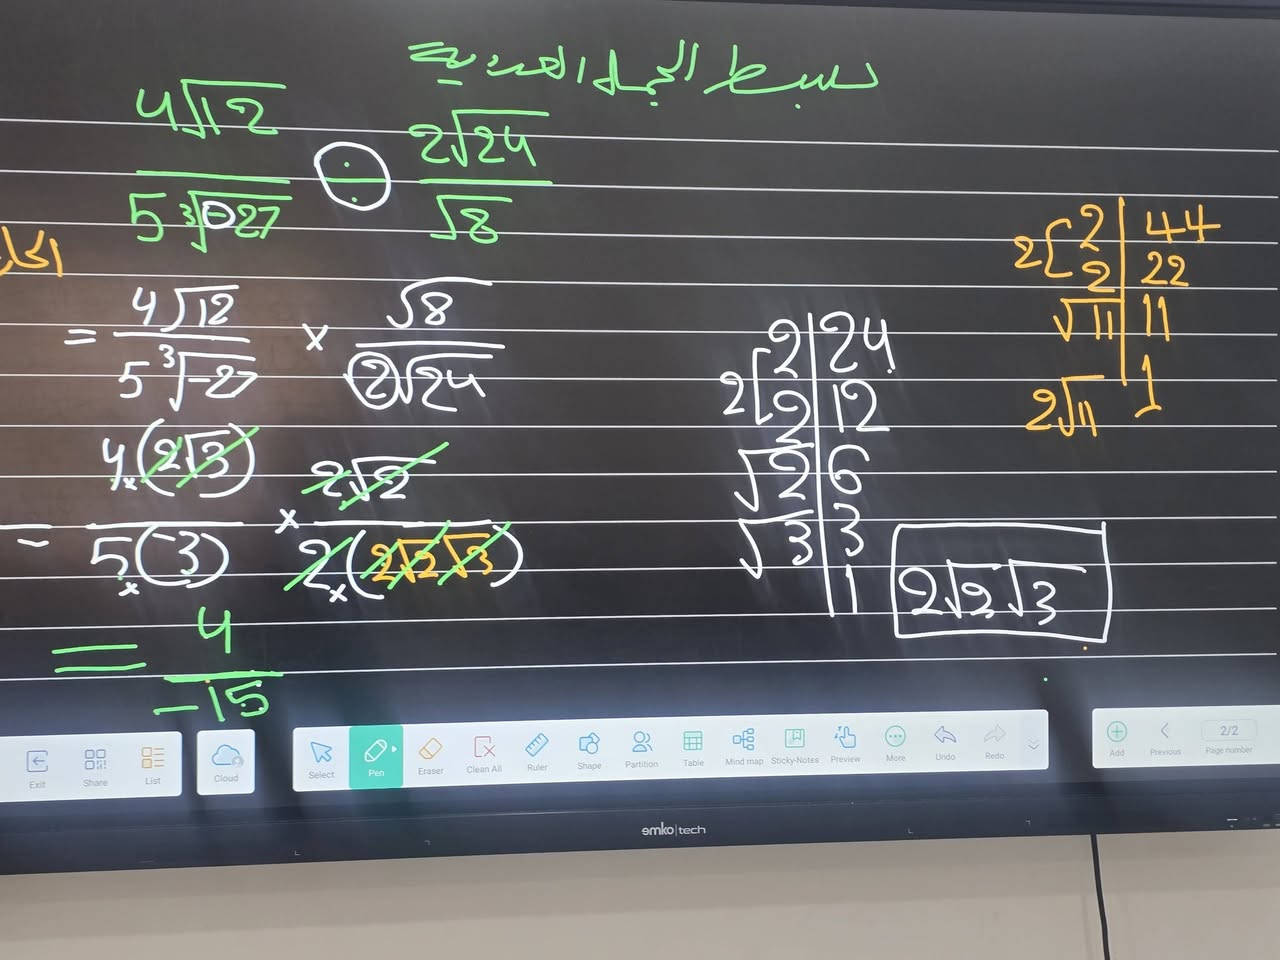 بسط الجمل العددية
4√12 / 5 ∛-27 ÷ 2√24 / √8
الحل
= 4√12 / 5 ∛-27 × √8 / 2√24
= 4×(2√3) / 5×(-3) × 2√2 / 2×(2√2√3)
= 4 / -15
2 | 24
2 [ 2 | 12
√2 | 6
√3 | 3
1
2√2√3
2 [ 2 | 44
2 | 22
√11 | 11
2√11 1
Exit Share List Cloud Select Pen Eraser Clean All Ruler Shape Partition Table Mind map Sticky-Notes Preview More Undo Redo Add Previous 2/2 Page number
emko|tech